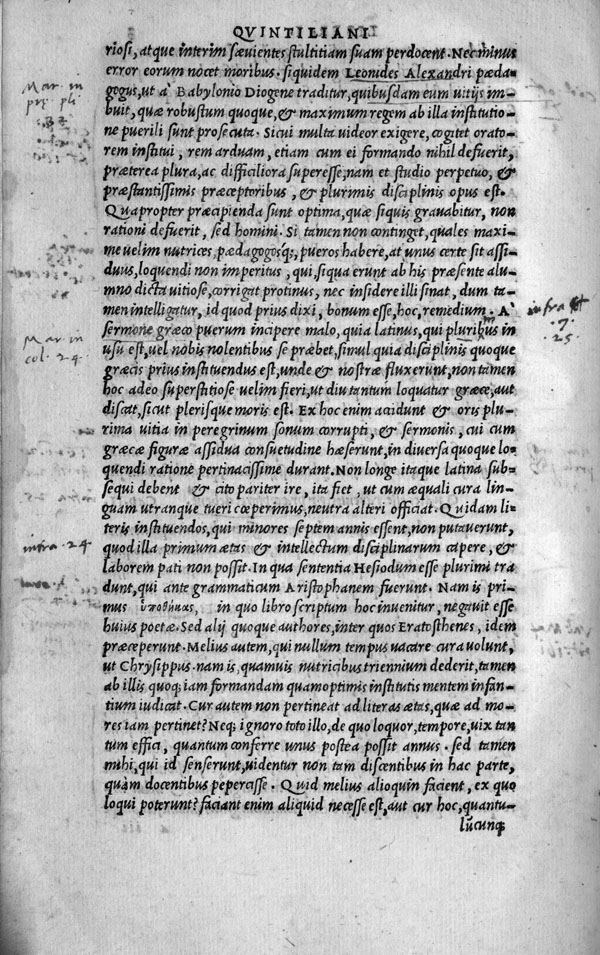 QVINTILIANI
riosi, atque interim sævientes stultitiam suam perdocent. Nec minus
error eorum nocet moribus. siquidem Leonides Alexandri pæda-
gogus, ut a' Babylonio Diogene traditur, quibusdam eum vitijs im-
Mar. in
buit, quæ robustum quoque, & maximum regem ab illa institutio-
ne puerili sunt prosecuta. Sicui multa videor exigere, cogitet orato-
rem institui, rem arduam, etiam cum ei formando nihil defuerit,
præterea plura, ac difficiliora superesse, nam et studio perpetuo, &
præstantissimis præceptoribus, & plurimis disciplinis opus est.
Quapropter præcipienda sunt optima, quæ siquis gravabitur, non
rationi defuerit, sed homini. Si tamen non continget, quales maxi-
me velim nutrices, pædagogosq;, pueros habere, at unus certe sit assi-
duus, loquendi non imperitus, qui, siqua erunt ab his præsente alu-
mno dicta vitiose, corrigat protinus, nec insidere illi sinat, dum ta-
men intelligatur, id quod prius dixi, bonum esse, hoc, remedium. A'
infra
7.
25.
sermone græco puerum incipere malo, quia latinus, qui pluribus in
Mar. in
col. 24.
usu est, vel nobis nolentibus se præbet, simul quia disciplinis quoque
græcis prius instituendus est, unde & nostræ fluxerunt, non tamen
hoc adeo superstitiose velim fieri, ut diu tantum loquatur græce, aut
discat, sicut plerisque moris est. Ex hoc enim acidunt & oris plu-
rima vitia in peregrinum sonum corrupti, & sermonis, cui cum
græcæ figuræ assidua consuetudine hæserunt, in diversa quoque lo-
quendi ratione pertinacissime durant. Non longe itaque latina sub-
sequi debent & cito pariter ire, ita fiet, ut cum æquali cura lin-
guam utranque tueri cœperimus, neutra alteri officiat. Quidam li-
teris instituendos, qui minores septem annis essent, non putaverunt,
infra. 24
quod illa primum ætas & intellectum disciplinarum capere, &
laborem pati non possit. In qua sententia Hesiodum esse plurimi tra
dunt, qui ante grammaticum Aristophanem fuerunt. Nam is pri-
mus ὑποθήκας, in quo libro scriptum hoc invenitur, negavit esse
huius poetæ. Sed alij quoque authores, inter quos Eratosthenes, idem
præceperunt. Melius autem, qui nullum tempus vacare cura volunt,
ut Chrysippus. nam is, quamuis nutricibus triennium dederit, tamen
ab illis quoq; iam formandam quamoptimis institutis mentem infan-
tium iudicat. Cur autem non pertineat ad literas ætas, quæ ad mo-
res iam pertinet? Neq; ignoro toto illo, de quo loquor, tempore, uix tan
tum effici, quantum conferre unus postea possit annus. sed tamen
mihi, qui id senserunt, videntur non tam discentibus in hac parte,
quàm docentibus pepercisse. Quid melius alioquin facient, ex quo
loqui poterunt? faciant enim aliquid necesse est, aut cur hoc, quantu-
lũcunq